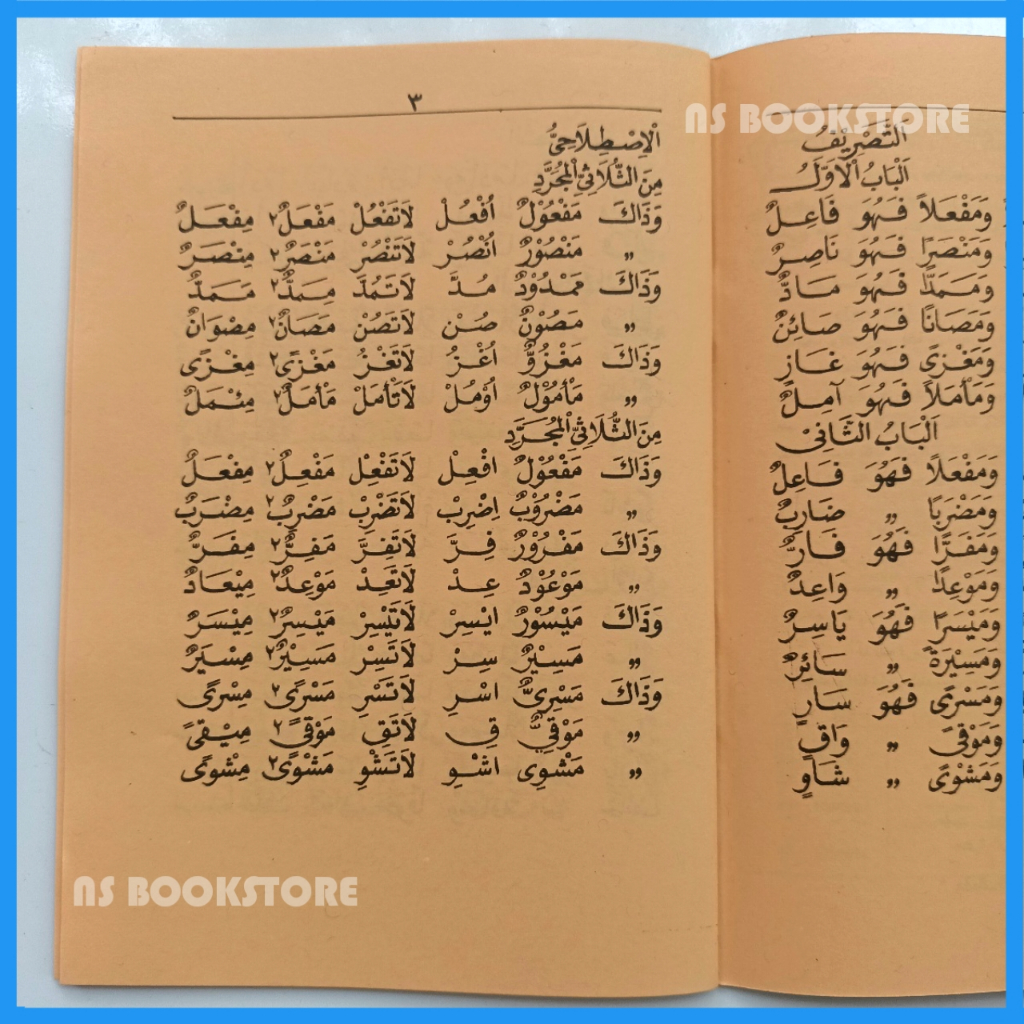 NS BOOKSTORE
اَلتَّصْرِيْفُ
اَلْبَابُ الْاَوَّلُ
وَمَفْعَلاً فَهُوَ فَاعِلٌ
وَمَنْصَرًا فَهُوَ نَاصِرٌ
وَمَمَدًّا فَهُوَ مَادٌّ
وَمَصَانًا فَهُوَ صَائِنٌ
وَمَغْزًى فَهُوَ غَازٍ
وَمَأْمَلاً فَهُوَ آمِلٌ
اَلْبَابُ الثَّانِىْ
وَمَفْعَلًا فَهُوَ فَاعِلٌ
وَمَضْرَبًا ” ضَارِبٌ
وَمَفَرًّا فَهُوَ فَارٌّ
وَمَوْعِدًا ” وَاعِدٌ
وَمَيْسَرًا فَهُوَ يَاسِرٌ
وَمَسِيْرَةً ” سَائِرٌ
وَمَسْرًى فَهُوَ سَارٍ
وَمَوْقًى ” وَاقٍ
وَمَشْوًى ” شَاوٍ
٣
اَلْاِصْطِلَاحِىُّ
مِنَ الثُّلَاثِىِّ الْمُجَرَّدِ
وَذَاكَ مَفْعُوْلٌ اُفْعُلْ لَاتَفْعُلْ مَفْعَلٌ ٢ مِفْعَلٌ
” مَنْصُوْرٌ اُنْصُرْ لَاتَنْصُرْ مَنْصَرٌ ٢ مِنْصَرٌ
وَذَاكَ مَمْدُوْدٌ مُدَّ لَاتَمُدَّ مِمَدٌّ ٢ مَمَدٌّ
” مَصُوْنٌ صُنْ لَاتَصُنْ مَصَانٌ ٢ مِصْوَانٌ
وَذَاكَ مَغْزُوٌّ اُغْزُ لَاتَغْزُ مَغْزًى ٢ مِغْزًى
” مَأْمُوْلٌ اُوْمُلْ لَاتَأْمَلْ مَأْمَلٌ ٢ مِئْمَلٌ
مِنَ الثُّلَاثِىِّ الْمُجَرَّدِ
وَذَاكَ مَفْعُوْلٌ افْعِلْ لَاتَفْعِلْ مَفْعِلٌ ٢ مِفْعَلٌ
” مَضْرُوْبٌ اِضْرِبْ لَاتَضْرِبْ مَضْرِبٌ ٢ مِضْرَبٌ
وَذَاكَ مَفْرُوْرٌ فِرَّ لَاتَفِرَّ مَفِرٌّ ٢ مِفَرٌّ
” مَوْعُوْدٌ عِدْ لَاتَعِدْ مَوْعِدٌ ٢ مِيْعَادٌ
وَذَاكَ مَيْسُوْرٌ ايْسِرْ لَاتَيْسِرْ مَيْسِرٌ ٢ مِيْسَرٌ
” مَسِيْرٌ سِرْ لَاتَسِرْ مَسِيْرٌ ٢ مِسْيَرٌ
وَذَاكَ مَسْرِىٌّ اسْرِ لَاتَسْرِ مَسْرًى ٢ مِسْرًى
” مَوْقِىٌّ قِ لَاتَقِ مَوْقًى ٢ مِيْقًى
” مَشْوِى اشْوِ لَاتَشْوِ مَشْوًى ٢ مِشْوًى
NS BOOKSTORE